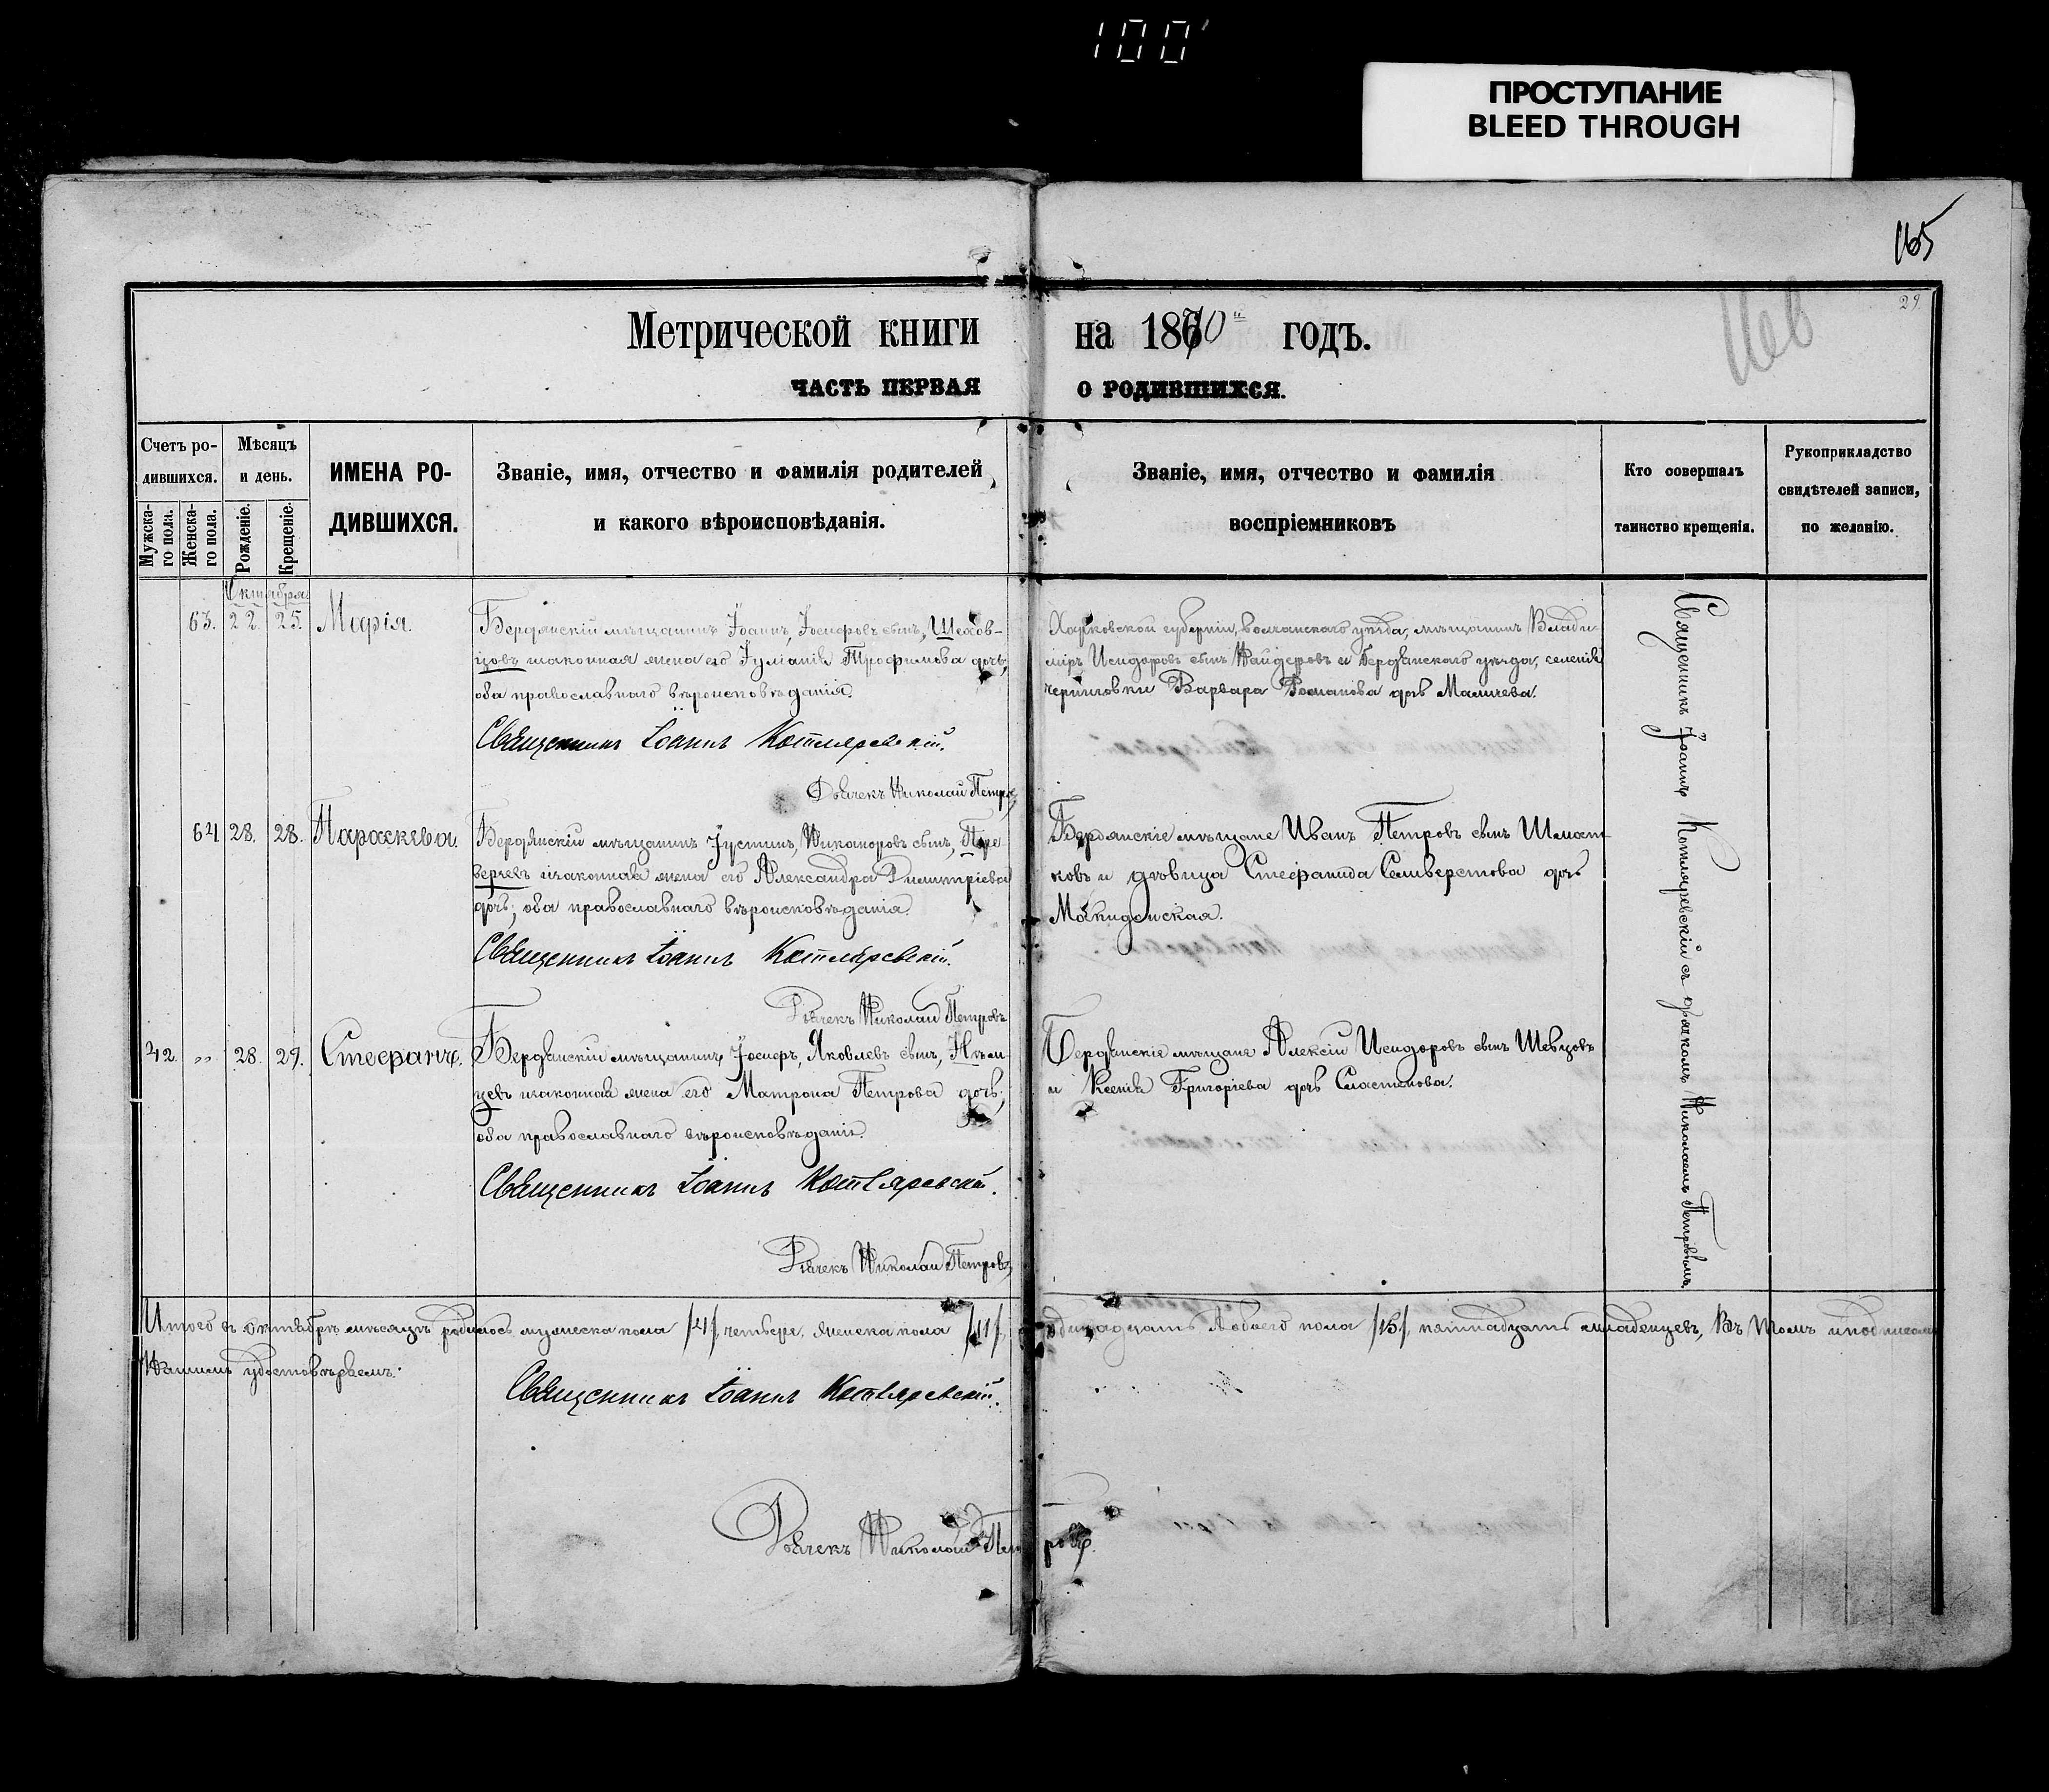 100
ПРОСТУПАНИЕ
BLEED THROUGH
165
29
Метрической книги на 1870й годъ.
ЧАСТЬ ПЕРВАЯ О РОДИВШИХСЯ.
Счетъ ро-
дившихся.
Мужска-
го пола.
Женска-
го пола.
Мѣсяцъ
и день.
Рожденіе.
Крещеніе.
ИМЕНА РО-
ДИВШИХСЯ.
Званіе, имя, отчество и фамилія родителей
и какого вѣроисповѣданія.
Званіе, имя, отчество и фамилія
воспріемниковъ
Кто совершалъ
таинство крещенія.
Рукоприкладство
свидѣтелей записи,
по желанію.
Октября
63. 22. 25. Марія.
Бердянскій мѣщанинъ Іоаннъ, Іосифовъ сынъ,
цовъ изаконная жена его Іуліанія Трофимова дочь;
оба православнаго вѣроисповѣданія.
Священникъ Іоаннъ Котляревскій.
Дьячекъ Николай Петровъ
Харковской губерніи, волчанскаго уѣзда, мѣщанинъ Влади-
міръ Исидоровъ сынъ и Бердянскаго уѣзда, селенія
черниговки Варвара Романова дочь
64 28. 28. Параскева.
Бердянскій мѣщанинъ Іустинъ, Никаноровъ сынъ, Пере-
верчевъ изаконная жена его Александра Димитріева
дочь; оба православнаго вѣроисповѣданія.
Священникъ Іоаннъ Котляревскій.
Дьячекъ Николай Петровъ
Бердянскіе мѣщане Иванъ Петровъ сынъ Шмат-
ковъ и дѣвица Стефанида Селиверстова дочь
Макидонская.
42. „ 28. 29. Стефанъ.
Бердянскій мѣщанинъ Іосифъ, Яковлевъ сынъ, Нѣм-
цевъ изаконная жена его Матрона Петрова дочь;
оба православнаго вѣроисповѣданія.
Священникъ Іоаннъ Котляревскій.
Дьячекъ Николай Петровъ
Бердянскіе мѣщане Алексій Исидоровъ сынъ Шевцовъ
и Ксенія Григоріева дочь Сластинова.
Священникъ Іоаннъ Котляревскій съ дьячкомъ Николаемъ Петровымъ
Итого въ октябрѣ мѣсяцѣ родилось мужеска пола /4/ четыре, женска пола /11/ одинадцать Обоего пола /15/ пятнадцать младенцевъ, Въ томъ и подписомъ
Нашимъ удостовѣряемъ:
Священникъ Іоаннъ Котляревскій.
Дьячекъ Николай Петровъ.